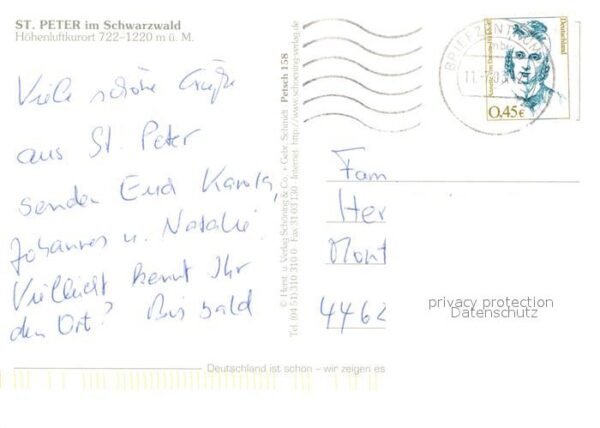 ST. PETER im Schwarzwald
Höhenluftkurort 722–1220 m ü. M.
Viele schöne Grüße
aus St. Peter
senden Euch Karola,
Johannes u. Natalie.
Vielleicht kennt Ihr
den Ort? Bis bald
© Herst. u. Verlag Schöning & Co. + Gebr. Schmidt Petsch 158
Tel. (04 51) 310 310-0 · Fax 31 03 130 · Internet: http://www.schoening-verlag.de
BRIEFZENTRUM
0,45€
Deutschland
Fam
Her
Mont
4462
privacy protection
Datenschutz
Deutschland ist schön – wir zeigen es